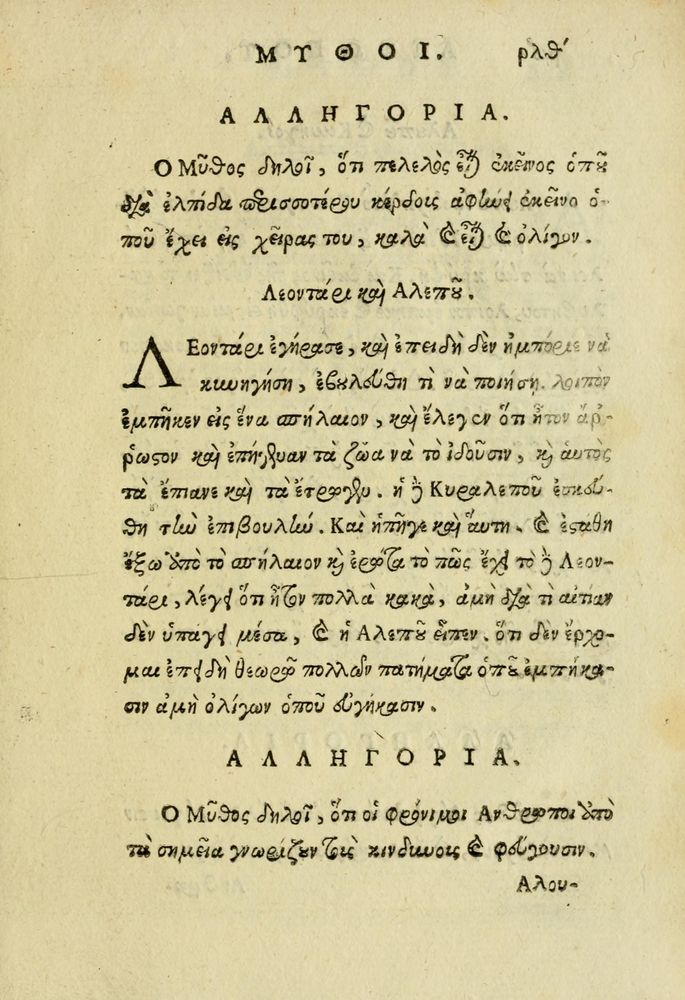 ΜΥΘΟΙ. ρλθʹ
ΑΛΛΗΓΟΡΙΑ.
Ο Μῦθος δηλοῖ, ὅτι πελελὸς εἶναι ἐκεῖνος ὁποῦ
διὰ ἐλπίδα περισσοτέρου κέρδοις αφίνει ἐκεῖνο ὁ-
ποῦ ἔχει εἰς χεῖρας του, καλὰ καὶ εἶναι καὶ ὀλίγον.
Λεοντάρι καὶ Αλεποῦ.
ΛΕοντάρι ἐγήρασε, καὶ ἐπειδὴ δὲν ἠμπόριε νὰ
κυνηγήση, ἐβουλεύθη τὶ νὰ ποιήση. λοιπὸν
ἐμπῆκεν εἰς ἕνα σπήλαιον, καὶ ἔλεγεν ὅτι ἦτον ἄῤ-
ῥωστον καὶ ἐπήγεναν τὰ ζῶα νὰ τὸ ἰδοῦσιν, καὶ ἀυτὸς
τὰ ἔπιανε καὶ τὰ ἔτρωγεν. ἡ δὲ Κυραλεποῦ ἐσκεύ-
θη τὴν ἐπιβουλήν. Καὶ ἠπῆγε καὶ ἄυτη. καὶ ἐστάθη
ἔξω ἀπὸ τὸ σπήλαιον καὶ ἐρώτα τὸ πῶς ἔχει τὸ δὲ Λεον-
τάρι, λέγει ὅτι ἦτον πολλὰ κακὰ, ἀμὴ διὰ τὶ αἰτίαν
δὲν ὑπαγει μέσα, καὶ ἡ Αλεποῦ εἶπεν. ὅτι δὲν ἔρχο-
μαι ἐπειδὴ θεωρῶ πολλῶν πατήματα ὁποῦ ἐμπήκα-
σιν ἀμὴ ὀλίγων ὁποῦ ἐυγήκασιν.
ΑΛΛΗΓΟΡΙΑ.
Ο Μῦθος δηλοῖ, ὅτι οἱ φρόνιμοι Ανθρωποι ἀπὸ
τὰ σημεῖα γνωρίζουν τοὶς κινδύνοις καὶ φεύγουσιν.
Αλου-